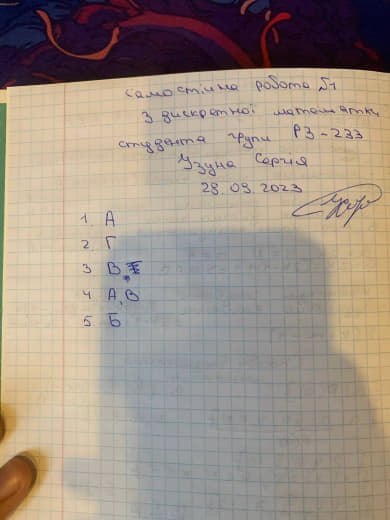 Самостійна робота №1
з дискретної математики
студента групи РЗ-233
Узуна Сергія
28.09.2023
1. А
2. Г
3 В
4 А, В
5. Б